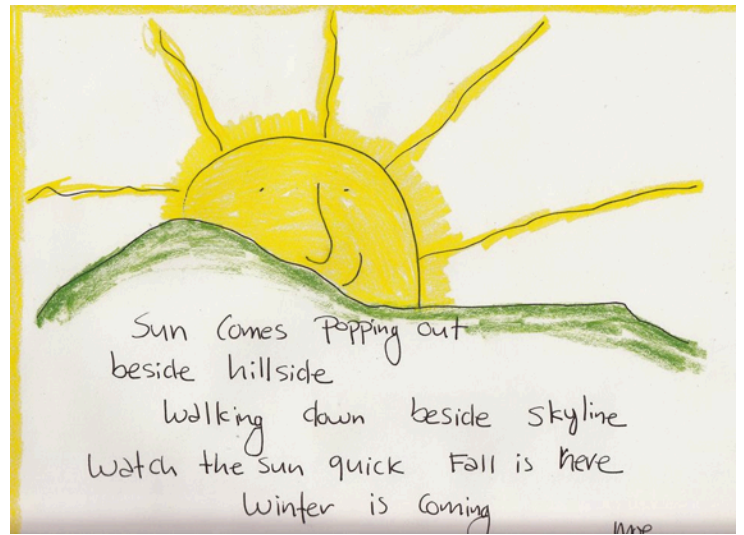 Sun Comes Popping out
beside hillside
Walking down beside skyline
Watch the Sun quick Fall is here
Winter is Coming